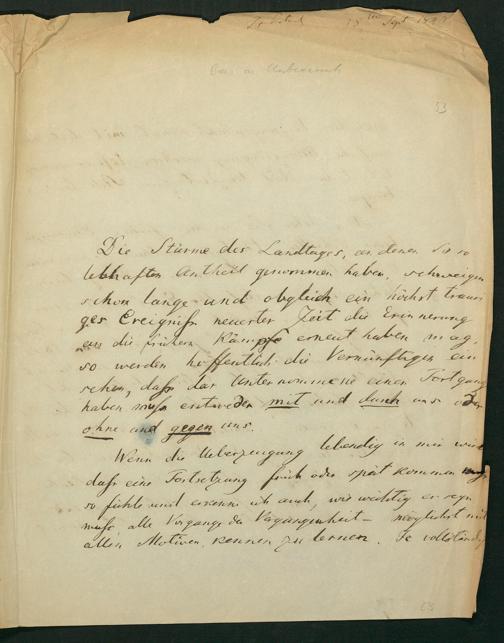 18ten Sept 18
an Unbekannt
53
Die Stürme des Landtages, an denen Sie so
lebhaften Antheil genommen haben, schweigen
schon lange und obgleich ein höchst trauri
ges Ereigniß neuester Zeit die Erinnerung
an die frühern Kämpfe erneut haben mag,
so werden hoffentlich die Vernünftigen ein
sehen, daß das Unternommene einen Fortgang
haben muß entweder mit und durch uns oder
ohne und gegen uns.
Wenn die Ueberzeugung lebendig in mir wird
daß eine Fortsetzung früh oder spät kommen muß
so fühle und erkenne ich auch, wie wichtig es seyn
muß alle Vorgänge der Vergangenheit – möglichst mit
allen Motiven kennen zu lernen. Je vollständig
53